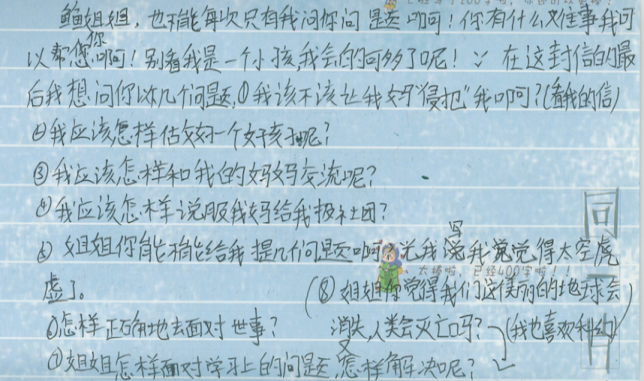 鱼姐姐,也不能每次只有我问你问题呀!你有什么难事我可
以帮您你啊!别看我是一个小孩,我会的可多了呢!在这封信的最
后我想问你以下几个问题,①我该不该让我妈"侵犯"我啊?(看我的信)
②我应该怎样做好一个好孩子呢?
③我应该怎样和我的妈妈交流呢?
④我应该怎样说服我妈给我报社团?
⑤姐姐你能不能给我提几个问题啊?光我写我觉觉得太空虚
虚了。
(⑧姐姐你觉得我们这美丽的地球会
⑥怎样正确地去面对世事?
消失,人类会灭亡吗?(我也喜欢科幻)
⑦姐姐怎样面对学习上的问题,又怎样解决呢?